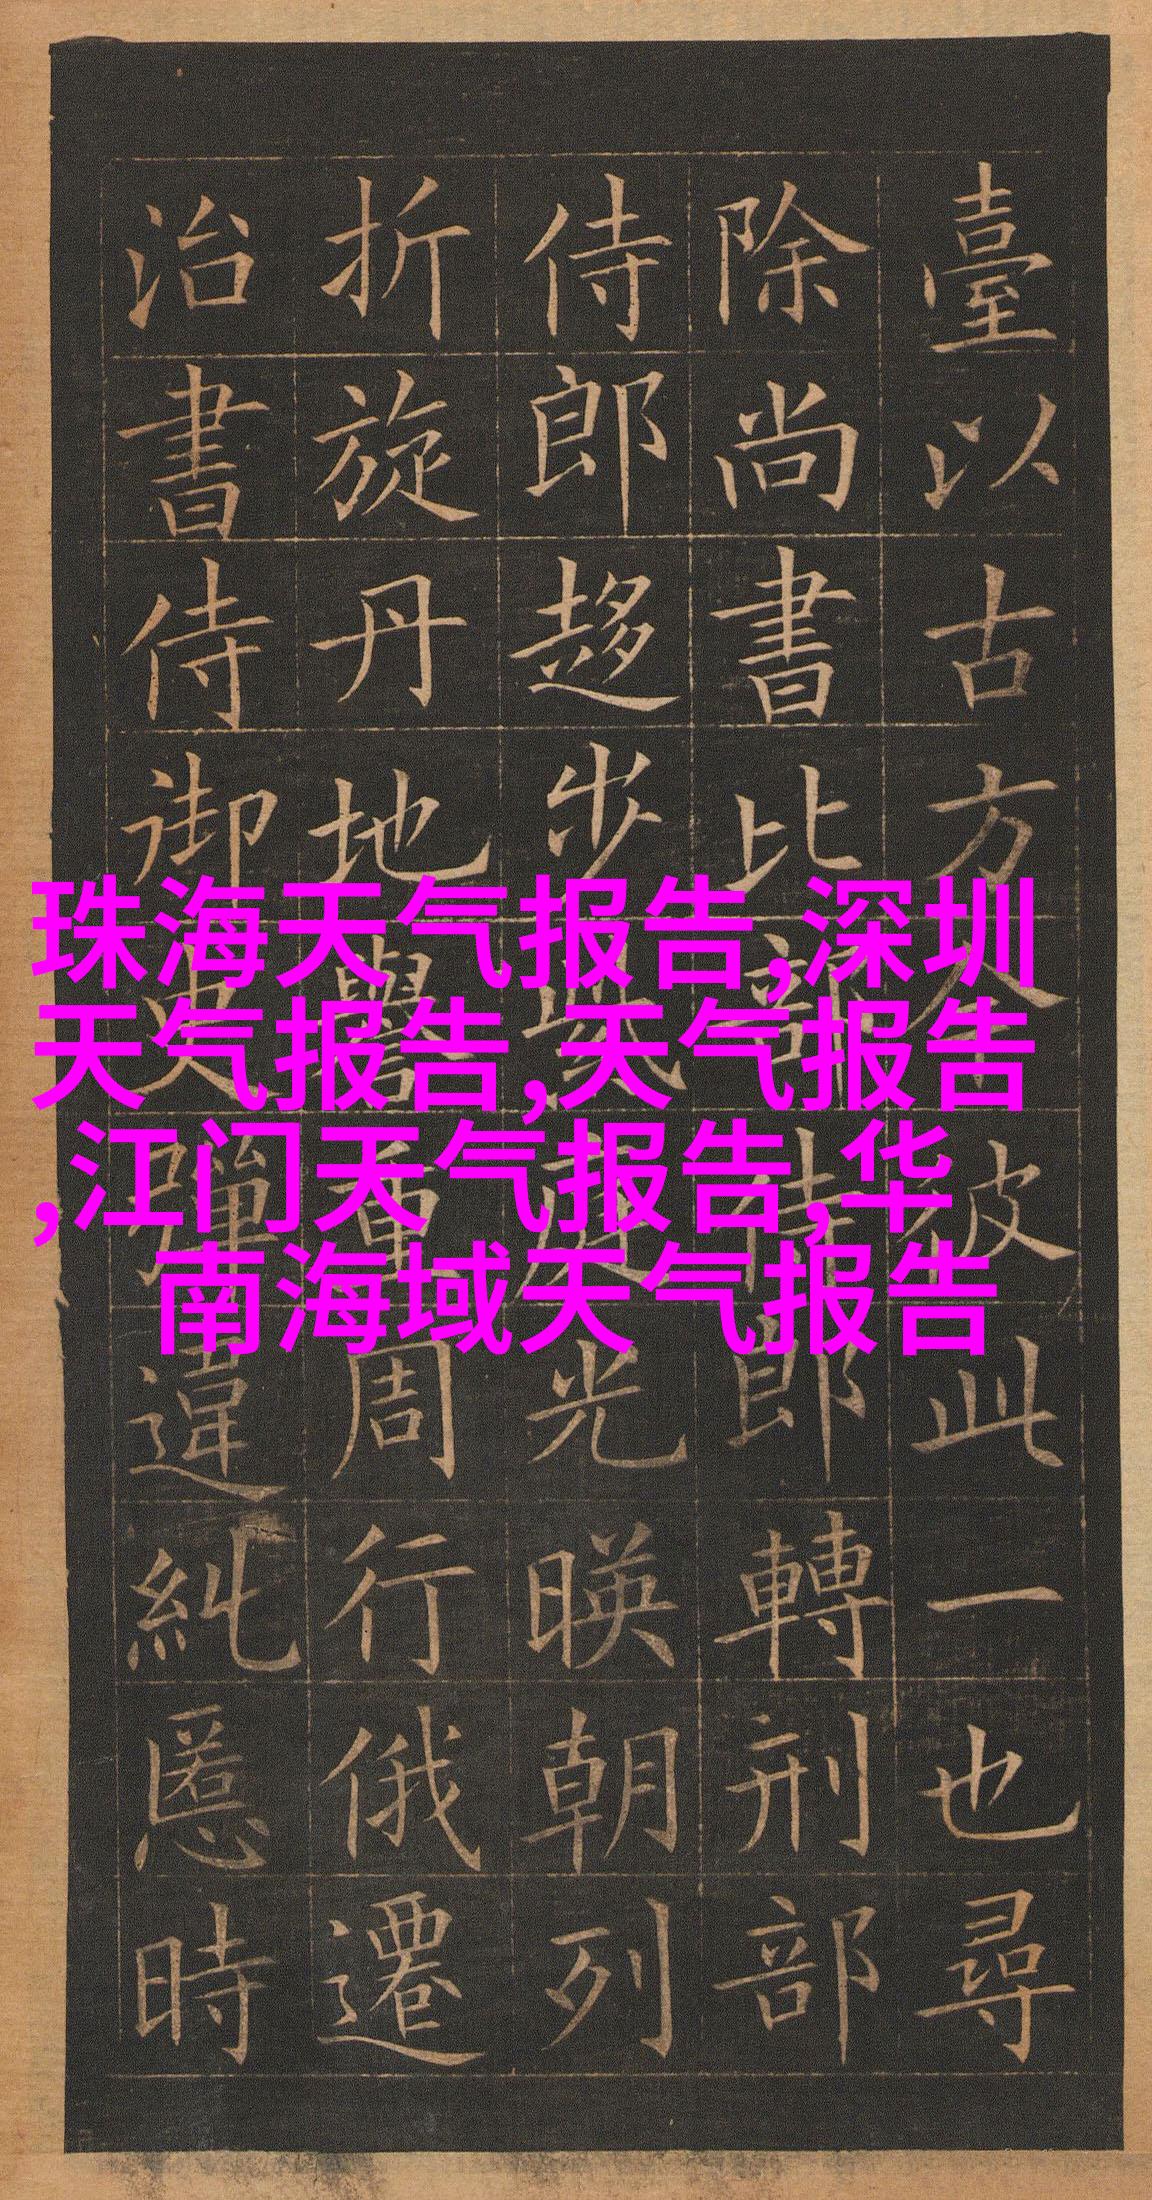 臺以古方今彼此一也尋
除尚書比部侍郎轉刑部
侍郎趍步庭光暎朝列
折旋丹地譽重周行俄遷
治書侍御史彈違糺慝時
珠海天气报告,深圳
天气报告,天气报告
,江门天气报告,华
南海域天气报告